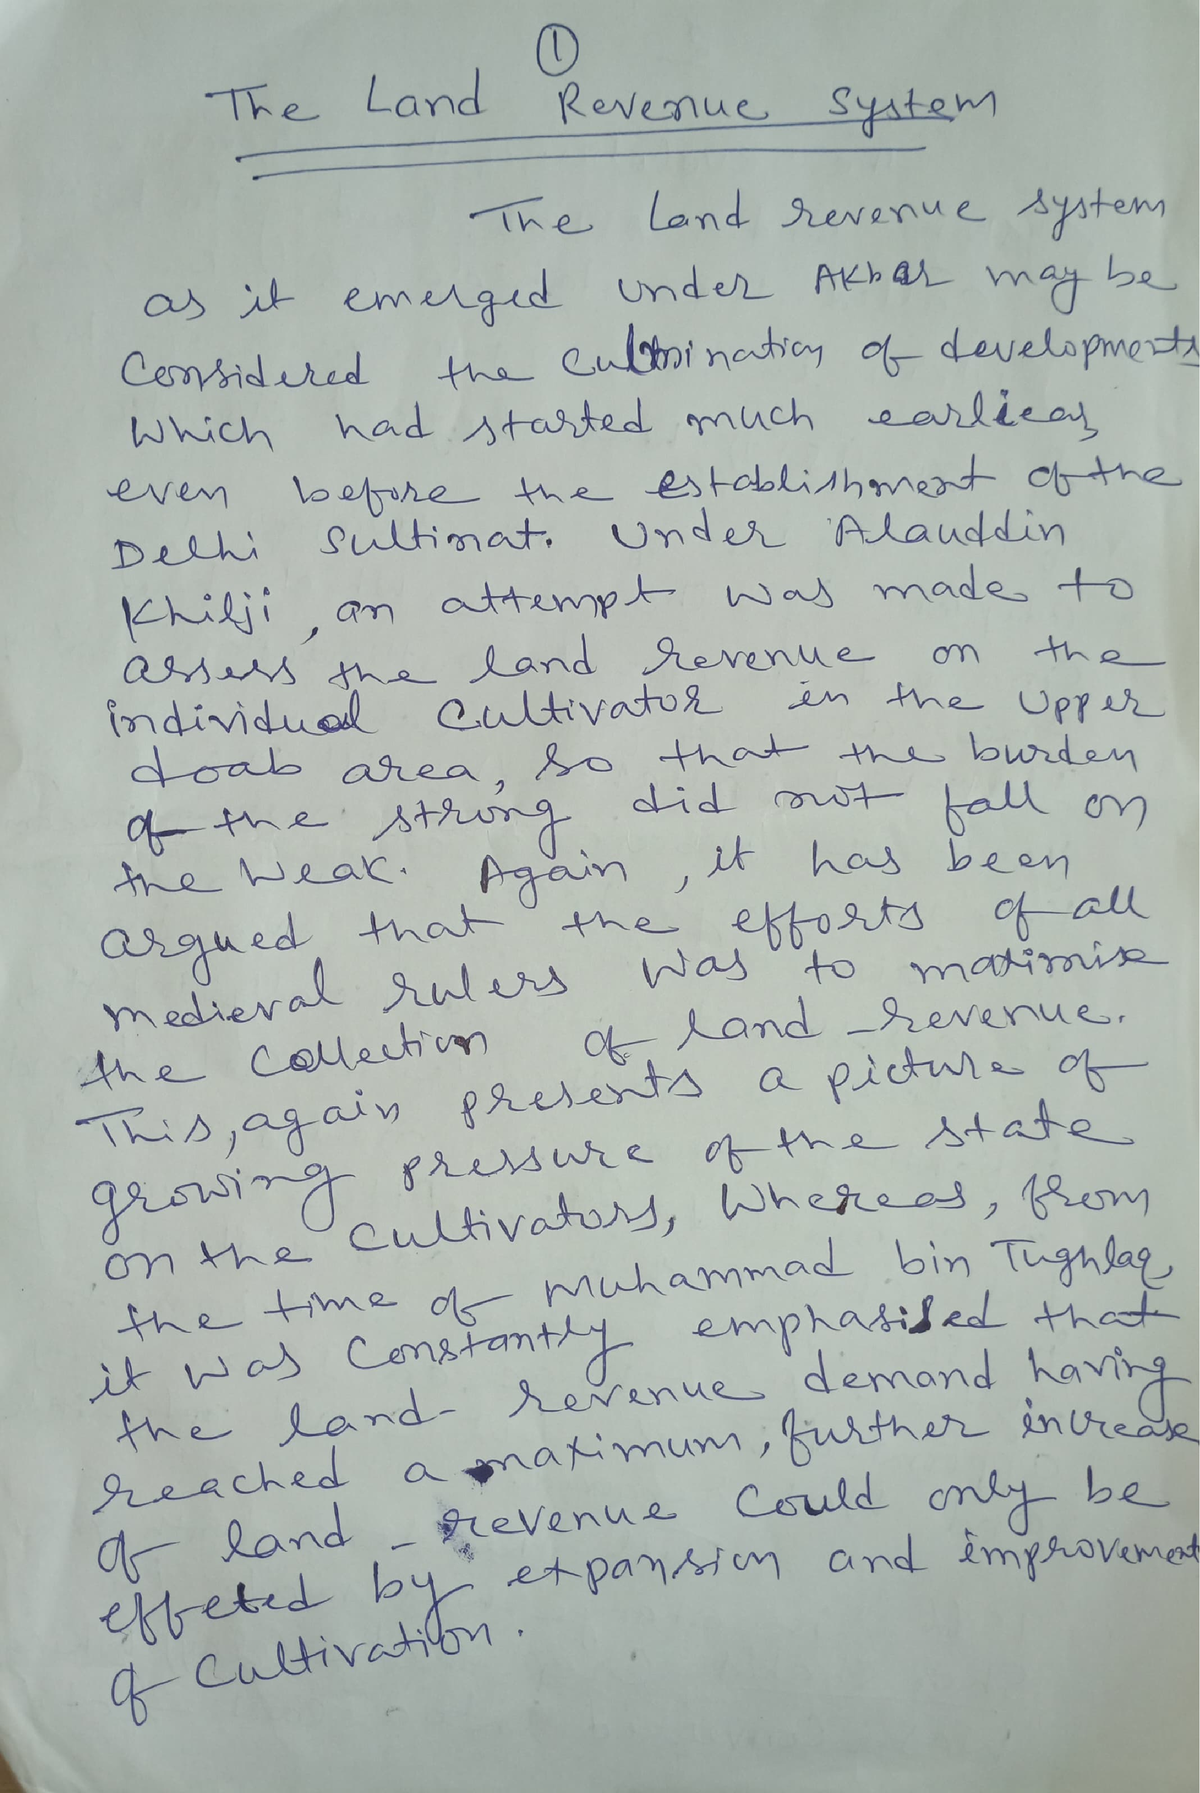 ①
The Land Revenue System
The Land revenue system
as it emerged under Akbar may be
Considered the Culmination of developments
Which had started much earlier,
even before the establishment of the
Delhi Sultinat. Under Alauddin
Khilji, an attempt was made to
assess the land revenue on the
individual Cultivator in the Upper
doab area, so that the burden
of the strong did not fall on
the weak. Again, it has been
argued that the efforts of all
medieval rulers was to maximise
the Collection of land-revenue.
This, again presents a picture of
growing pressure of the state
on the Cultivators, Whereas, from
the time of Muhammad bin Tughlaq,
it was Constantly emphasised that
the land-revenue demand having
reached a maximum, further increase
of land-revenue Could only be
effeted by expansion and improvement
of Cultivation.